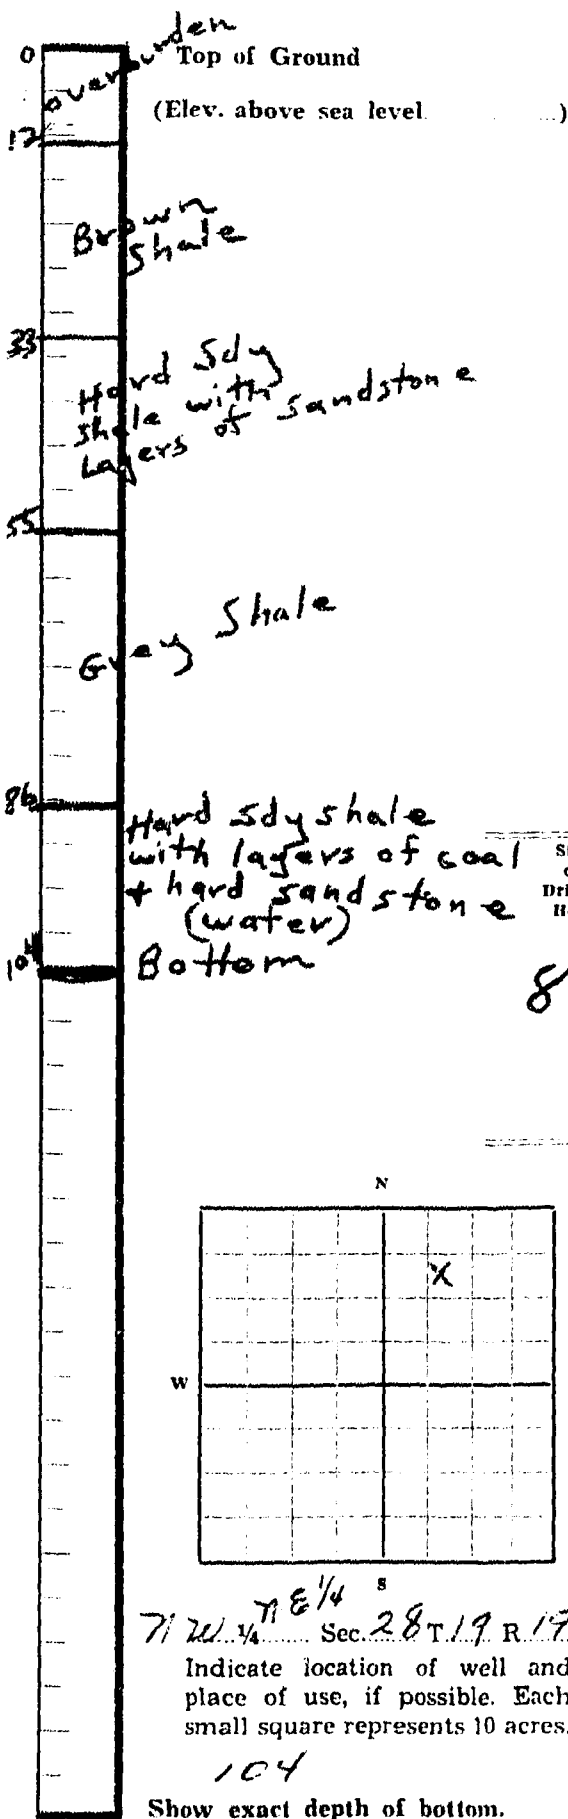 0
overburden
Top of Ground
(Elev. above sea level ...)
12
Brown
Shale
33
Hard Sdy
Shale with
Layers of Sandstone
55
Grey Shale
86
Hard sdy shale
with layers of coal
+ hard sandstone
(water)
104
Bottom
8
N
X
W
S
NW 1/4 NE 1/4 Sec. 28 T. 19 R. 19
Indicate location of well and
place of use, if possible. Each
small square represents 10 acres.
104
Show exact depth of bottom.